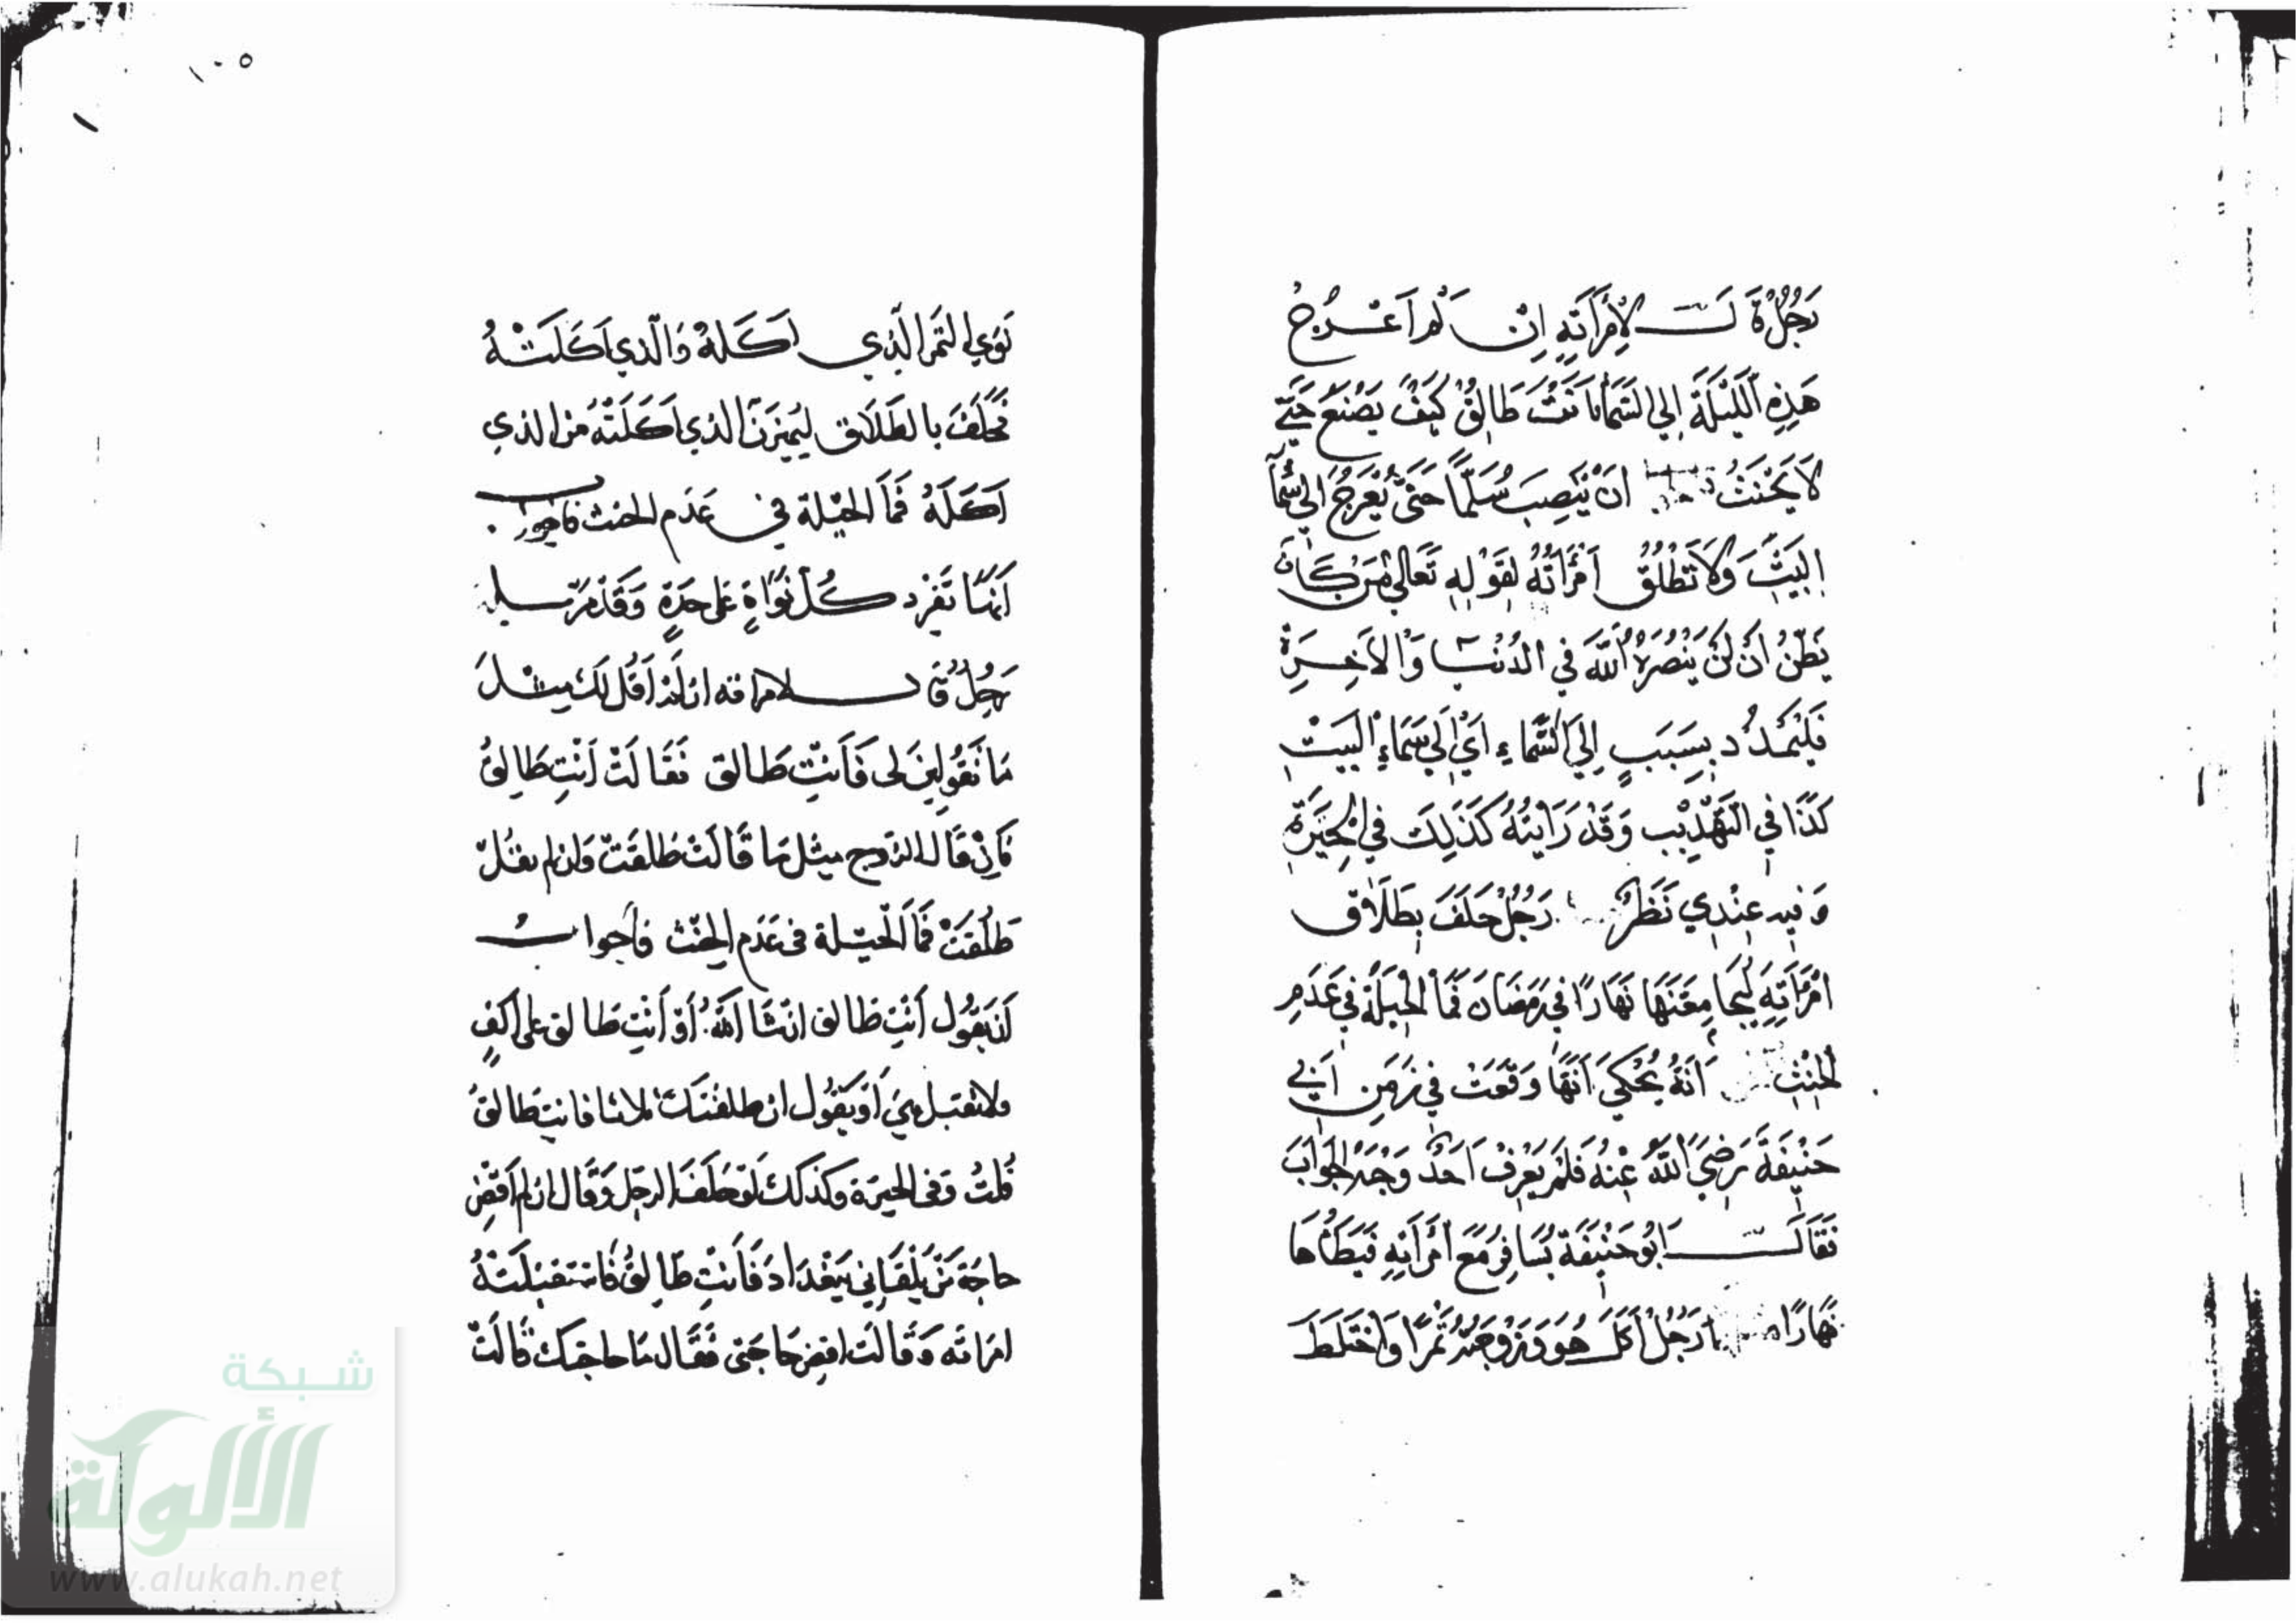 رَجُلٌ قَالَ لِامْرَأَتِهِ اِنْ لَمْ اَعْرُجْ
هَذِهِ اللَّيْلَةَ اِلي السَّمَا فَاَنْتِ طَالِقٌ كَيْفَ يَصْنَعُ حَتَّي
لَا يَحْنَثُ اَنْ يَنْصِبَ سُلَّمًا حَتَّي يَعْرُجَ الي سَمَآ
البَيْتِ وَلَا تَطْلُقُ امْرَاَتُهُ لِقَوْلِهِ تَعَالي مَنْ كَانَ
يَظُنُّ اَنْ لَنْ يَنْصُرَهُ اللَّهُ فِي الدُنْيَا وَالْاَخِرَةِ
فَلْيَمْدُدْ بِسَبَبٍ اِلَي السَّمَاءِ اَيْ اِلَي سَمَاءِ البَيْتِ
كَذَا فِي التَهْذِيْبِ وَقَدْ رَاَيْتُهُ كَذَلِكَ فِي الْحِيَرَةِ
وَفِيهِ عِنْدِي نَظَرٌ رَجُلٌ حَلَفَ بِطَلَاقِ
امْرَاَتِهِ لَيُجَامِعَنَّهَا نَهَارًا فِي رَمَضَانَ فَمَا الْحِيْلَةُ فِي عَدَمِ
الْحِنْثِ اَنَّهُ يُحْكَي اَنَّهَا وَقَعَتْ فِي زَمَنِ اَبِي
حَنِيْفَةَ رَضِيَ اللَّهُ عَنْهُ فَلَمْ يَعْرِفْ اَحَدٌ وَجْهَ الجَوَابِ
فَقَالَ اَبُو حَنِيْفَةَ يُسَافِرُ مَعَ امْرَاَتِهِ فَيَطَأُهَا
نَهَارًا رَجُلٌ اَكَلَ هُوَ وَزَوْجَتُهُ تَمْرًا وَاخْتَلَطَ
١٠٥
نَوَي التَمْرِ الَّذِي اَكَلَهُ وَالَّذِي اَكَلَتْهُ
فَحَلَفَ بِالطَلَاقِ لَيُمَيِّزَنَّ الذي اَكَلَتْهُ مِنَ الذي
اَكَلَهُ فَمَا الحِيْلَة فِي عَدَمِ الحنث فاجواب
اَنَّهَا تَفْرِد كُلَّ نَوَاةٍ عَلى حِدَةٍ وَقَدْ مَرَّ
رَجُلٌ قَال لامراته ان لَمْ اَقُل لَك مِثْلَ
مَا تَقُولِينَ لي فَاَنْتِ طَالق فَقَالَتْ اَنْتِ طَالِقٌ
فَاِنْ قَالَ الزوج مِثل مَا قَالَتْ طَلقَتْ وَان لم يَقُلْ
طَلُقَتْ فَمَا الْحِيْلة في عَدَم الْحِنْث فاجواب
اَنْ يَقُول اَنْتِ طالق ان شَا اللَّهُ اَوْ اَنْتِ طَالق عَلى اَلْفٍ
ولا تقبل هِيَ اَوْ يَقُول ان طلقتك ثلاثا فانتِ طَالقٌ
قُلتُ وَفي الحِيَرَة وَكذَلكَ لَوْ حَلَفَ الرجل وَقَالَ ان لم اَقْضِ
حاجَة مَنْ يَلْقَانِي بِبَغْدَادَ فَاَنْتِ طَالِقٌ فَاسْتَقْبَلَتْهُ
امْرَاته وَقَالَت اقض حَاجَتي فَقَال مَا حاجتك قَالَتْ
شبكة
الألوكة
www.alukah.net